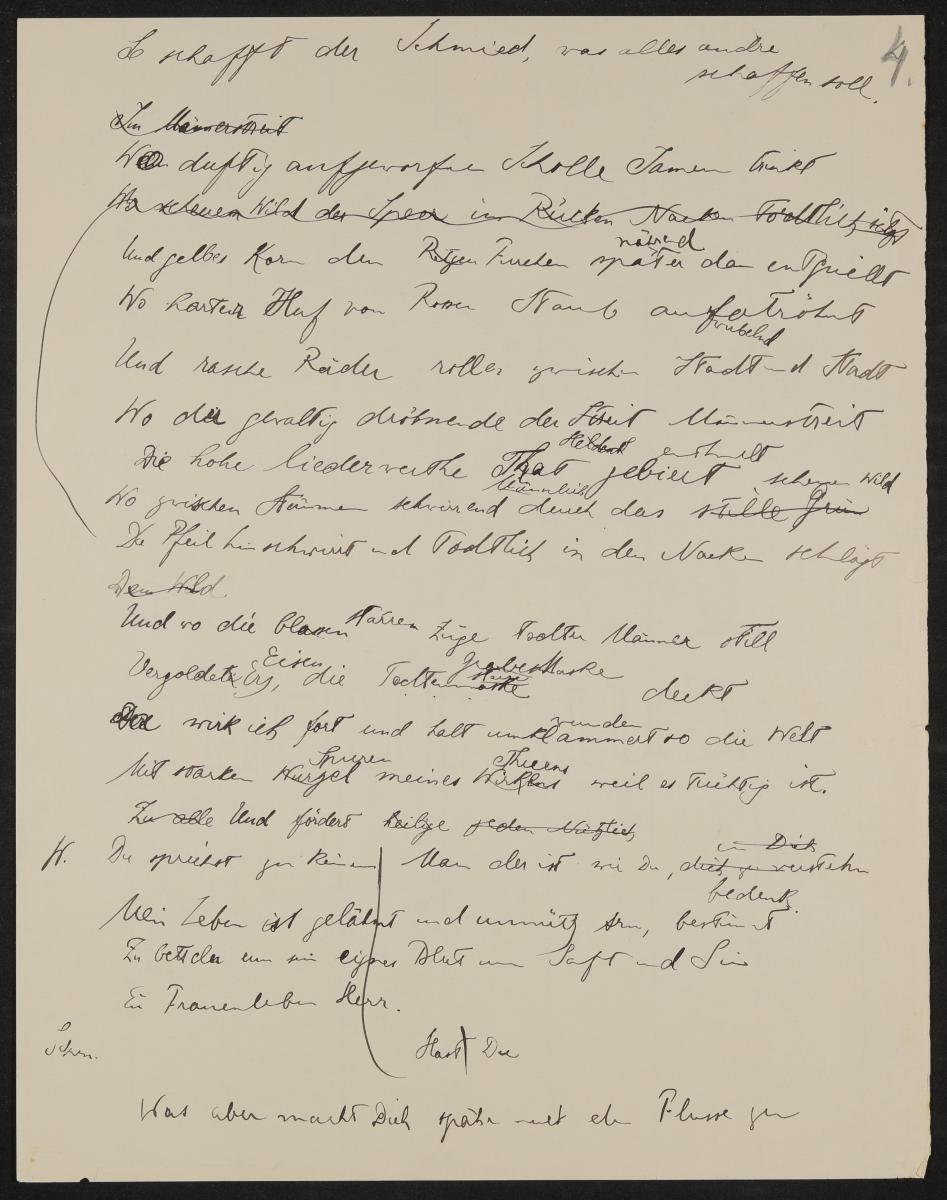 4.
So schafft der Schmied, was alles andre
schaffen soll.
Im Männerstreit
Wo duftig aufgeworfne Scholle Samen trinkt
Wo scheuem Wild der Speer im Rücken Nacken Tödtlich
nährend
Und gelbes Korn den Furchen später dann entquillt
Wo harter Huf von Rossen Staub auf
wirbelnd
Und rasche Räder rollen zwischen Stadt und Stadt
Wo der gewaltig dröhnende der Streit Männerstreit
Helden
Die hohe liederwerthe That gebiert scheuem Wild
Männlich
Wo zwischen Stämmen schwirrend durch das stille Grün
Der Pfeil hinschwirrt und Tödtlich in den Nacken schlägt
Dem Wild
Und wo die blassen starren Züge todter Männer still
Eisen Maske
Vergoldete Erz, die Todtenmaske deckt
wunden
wirk ich fort und halt umklammert so die Welt
Spuren Thuens
Mit starken Wurzel meines Wirkens weil es tüchtig ist.
Zu alle Und fördert heilige jeden Nützlich
in Dich
W. Du sprichst zu keinem Mann der ist wie Du, dich zu verstehn
bedenk
Mein Leben ist gelähmt und unnütz, bestimmt
Zu betteln um sein eignes Blut um Saft und Sinn
Ein Frauenleben Herr.
Schm. Hast Du
Was aber macht Dich später mit dem Flusse zu